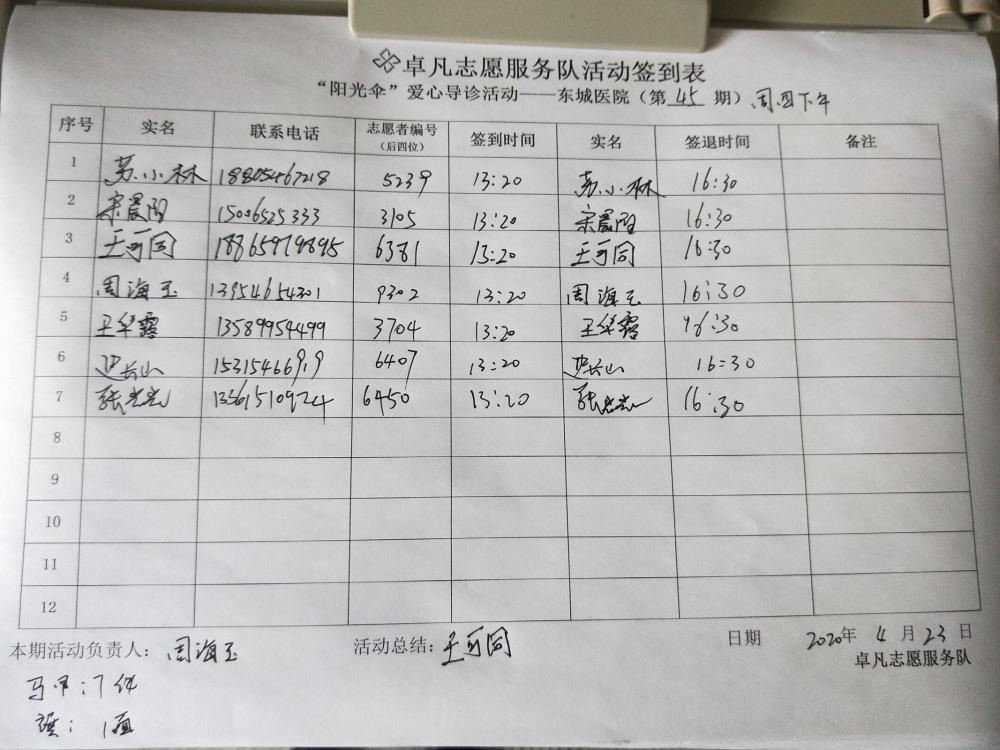 卓凡志愿服务队活动签到表
“阳光伞”爱心导诊活动——东城医院（第 45 期）周四下午
序号 实名 联系电话 志愿者编号（后四位） 签到时间 实名 签退时间 备注
1 苏小林 18805467218 5239 13:20 苏小林 16:30
2 宋晨阳 15006525333 3105 13:20 宋晨阳 16:30
3 王可同 18865979895 6381 13:20 王可同 16:30
4 周海玉 13954654301 9302 13:20 周海玉 16:30
5 王华露 13589959499 3704 13:20 王华露 16:30
6 长山 15315466919 6407 13:20 长山 16:30
7 张光光 13561510924 6450 13:20 张光光 16:30
8
9
10
11
12
本期活动负责人：周海玉 活动总结：王可同 日期 2020年 4 月 23 日
卓凡志愿服务队
马甲：7件
旗：1面